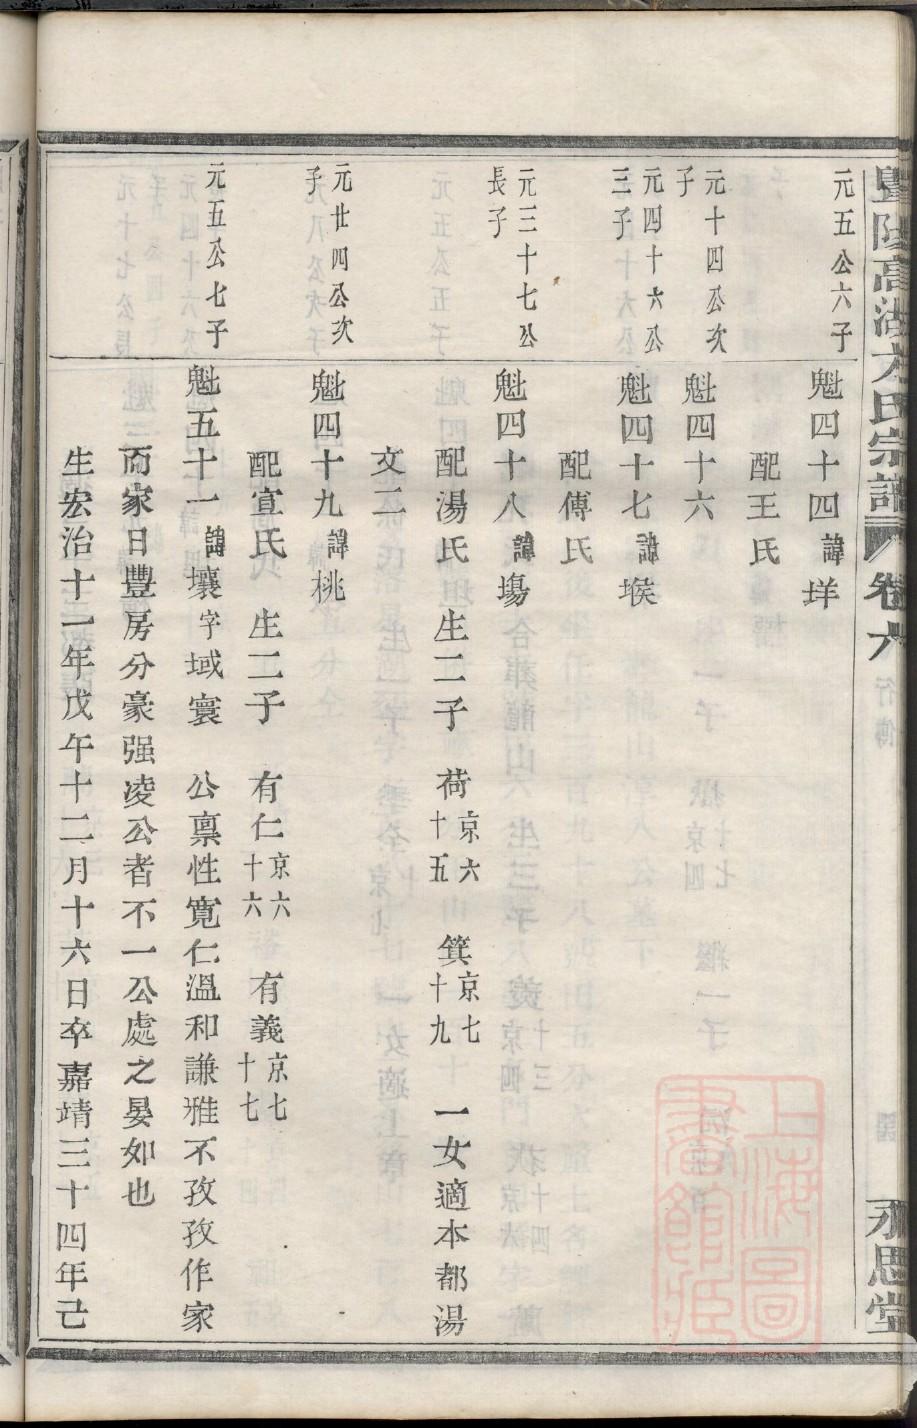 暨陽高湖方氏宗譜 卷六 行傳 永思堂
元五公六子
魁四十四諱垟
配王氏
元十四公次子
魁四十六
元四十六公三子
魁四十七諱堠
配傅氏
元三十七公長子
魁四十八諱塲
配湯氏 生二子 荷京六十五 箕京七十九 一女適本都湯
文二
元廿四公次子
魁四十九諱桃
配宣氏 生二子 有仁京六十六 有義京七十七
元五公七子
魁五十一諱壤字域寰 公禀性寬仁溫和謙雅不孜孜作家
而家日豐房分豪强凌公者不一公處之晏如也
生宏治十一年戊午十二月十六日卒嘉靖三十四年己
上海圖書館藏